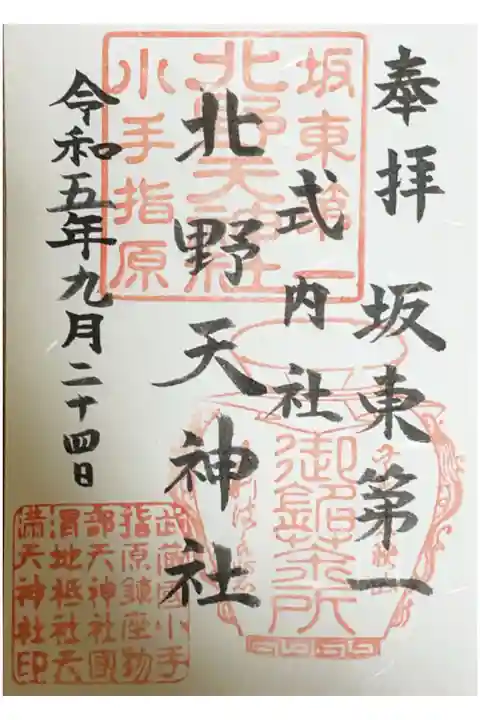 奉拝 坂東第一
式内社
北野天神社
令和五年九月二十四日
坂東第一
北野天神社
小手指原
御銘茶所
武蔵國小手
指原鎮座物
部天神社國
渭地祇社天
満天神社印